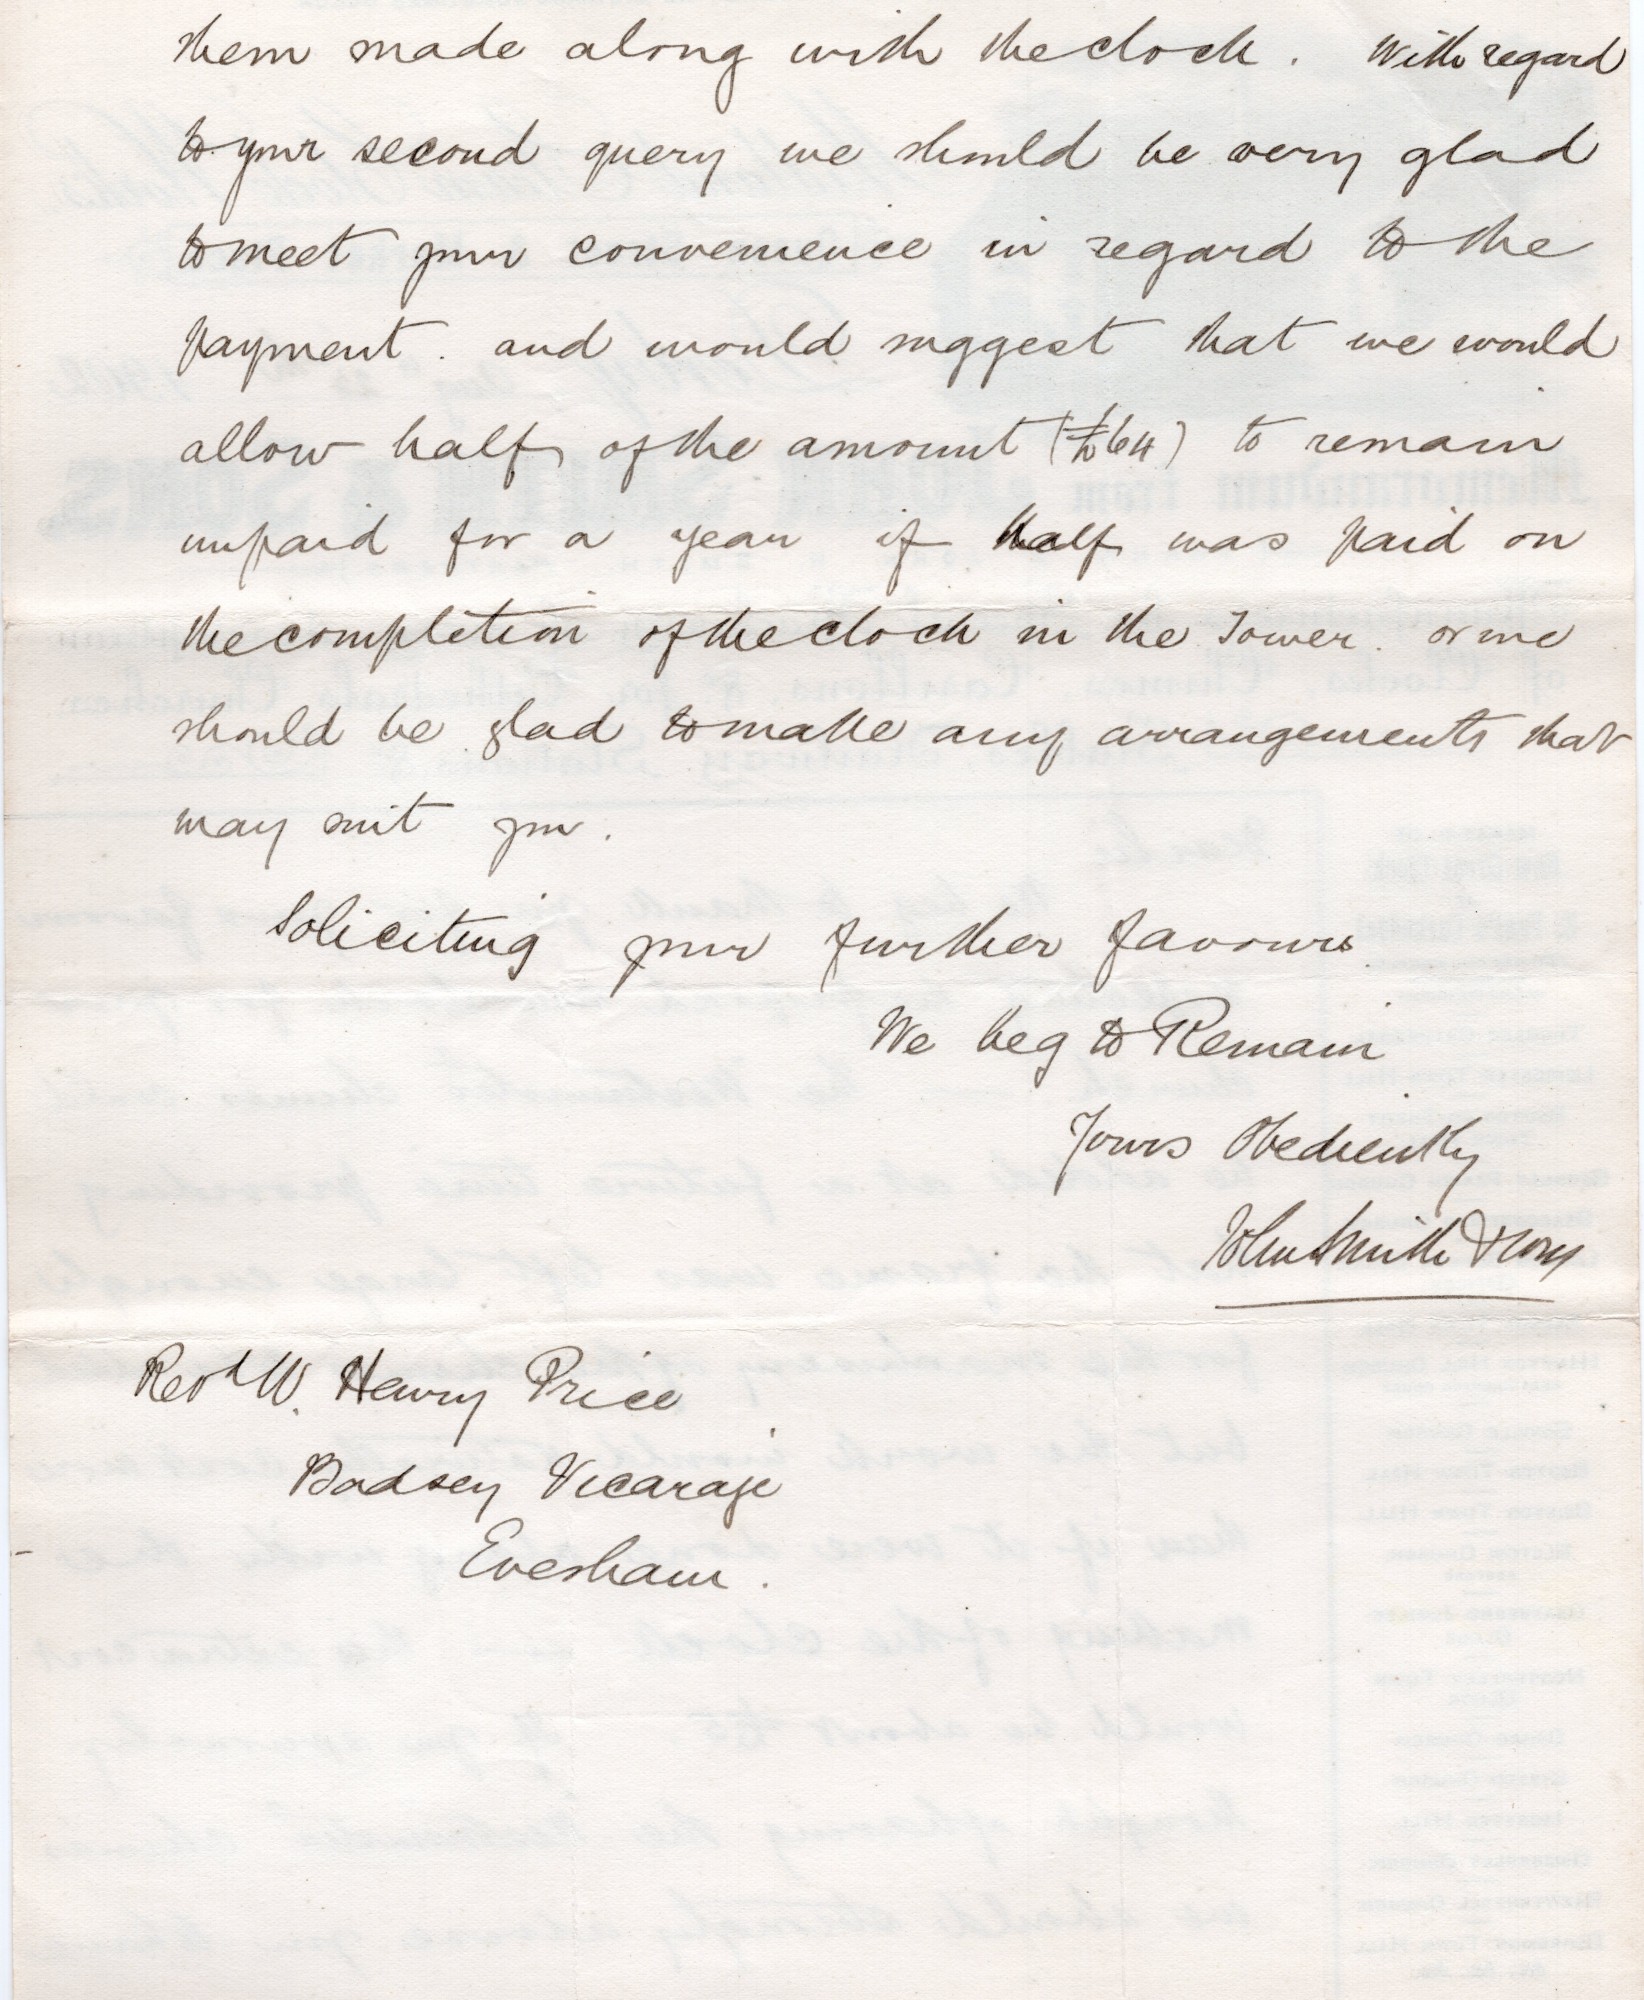 them made along with the clock. With regard
to your second query we should be very glad
to meet your convenience in regard to the
payment. and would suggest that we would
allow half of the amount (£64) to remain
unpaid for a year if half was paid on
the completion of the clock in the Tower. or we
should be glad to make any arrangements that
may suit you.
Soliciting your further favours
We beg to Remain
Yours Obediently
John Smith & Sons
Revd W. Henry Price
Badsey Vicarage
Evesham.